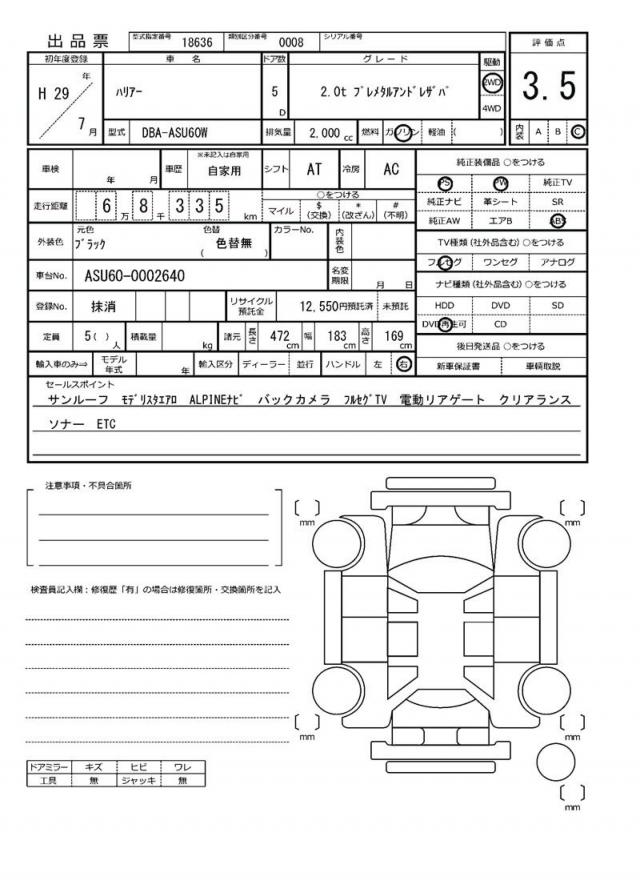 出品票 型式指定番号 18636 類別区分番号 0008 シリアル番号
初年度登録 車名 ドア数 グレード 駆動 評価点
H 29 年 ハリアー 5 D 2.0t プレメタルアンドレザパ 2WD 3.5
7 月 4WD
型式 DBA-ASU60W 排気量 2,000 cc 燃料 ガソリン 軽油 ( ) 内装 A B C
車検 年 月 車歴 ※未記入は自家用 自家用 シフト AT 冷房 AC 純正装備品 ○をつける
PS PW 純正TV
走行距離 6 万 8 千 3 3 5 km ○をつける 純正ナビ 革シート SR
マイル $ (交換) * (改ざん) # (不明) 純正AW エアB ABS
外装色 元色 ブラック 色替 ( 色替無 ) カラーNo. 内装色 TV種類 (社外品含む) ○をつける
フルセグ ワンセグ アナログ
車台No. ASU60-0002640 名変期限 月 日 ナビ種類 (社外品含む) ○をつける
登録No. 抹消 リサイクル預託金 12,550円預託済 未預託 HDD DVD SD
DVD再生可 CD
定員 5 ( ) 人 積載量 kg 諸元 長さ 472 cm 幅 183 cm 高さ 169 cm 後日発送品 ○をつける
輸入車のみ⇒ モデル年式 年 輸入区分 ディーラー 並行 ハンドル 左 右 新車保証書 車輌取説
セールスポイント
サンルーフ モデリスタエアロ ALPINEナビ バックカメラ フルセグTV 電動リアゲート クリアランス
ソナー ETC
注意事項・不具合箇所
mm mm
検査員記入欄:修復歴「有」の場合は修復箇所・交換箇所を記入
mm mm
ドアミラー キズ ヒビ ワレ
工具 無 ジャッキ 無
mm